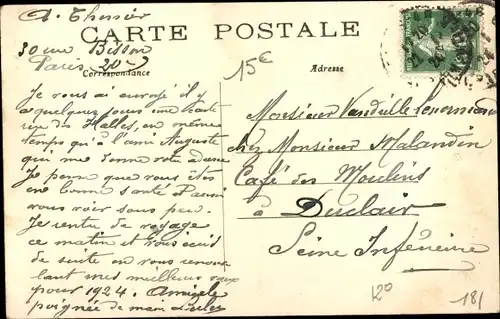 A. Thessier
CARTE POSTALE
30 rue Bisson
Paris 20e
Correspondance
Adresse
15c
Je vous ai envoyé il y
a quelques jours une carte
rue des Halles, en même
temps qu'à l'ami Auguste
qui me donne votre adresse
Je pense que vous êtes
en bonne santé
vous voir sous peu.
Je rentre de voyage
ce matin et vous écris
de suite en vous renouve
lant mes meilleurs vœux
pour 1924. Amicale
poignée de main
Monsieur
chez Monsieur Malandin
Café des Moulins
à Duclair
Seine Inférieure
120
181